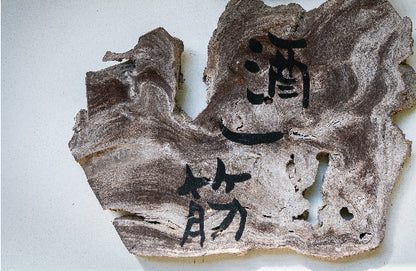 酒一筋